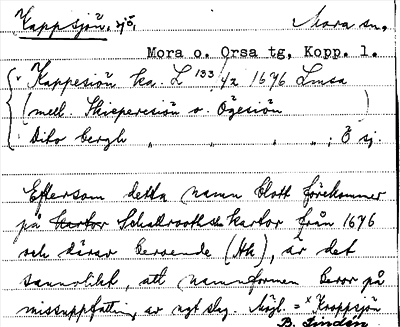 Kappsjön, sjö,          Mora sn.
Mora o. Orsa tg, Kopp. l.
Kappesiön ka. L 133 1/2 1676 Lmsa
(mell. Skiperesiön o. Ögesiön)
Dito bergh " " " " ; Ö sj.
Eftersom detta namn blott förekommer
på kartor Schattrootska kartor från 1676
och därav beroende (Hk), är det
sannolikt, att namnformen beror på
missuppfattning av ngt slag. Möjl. = x Kroppsjön
B. Lindén